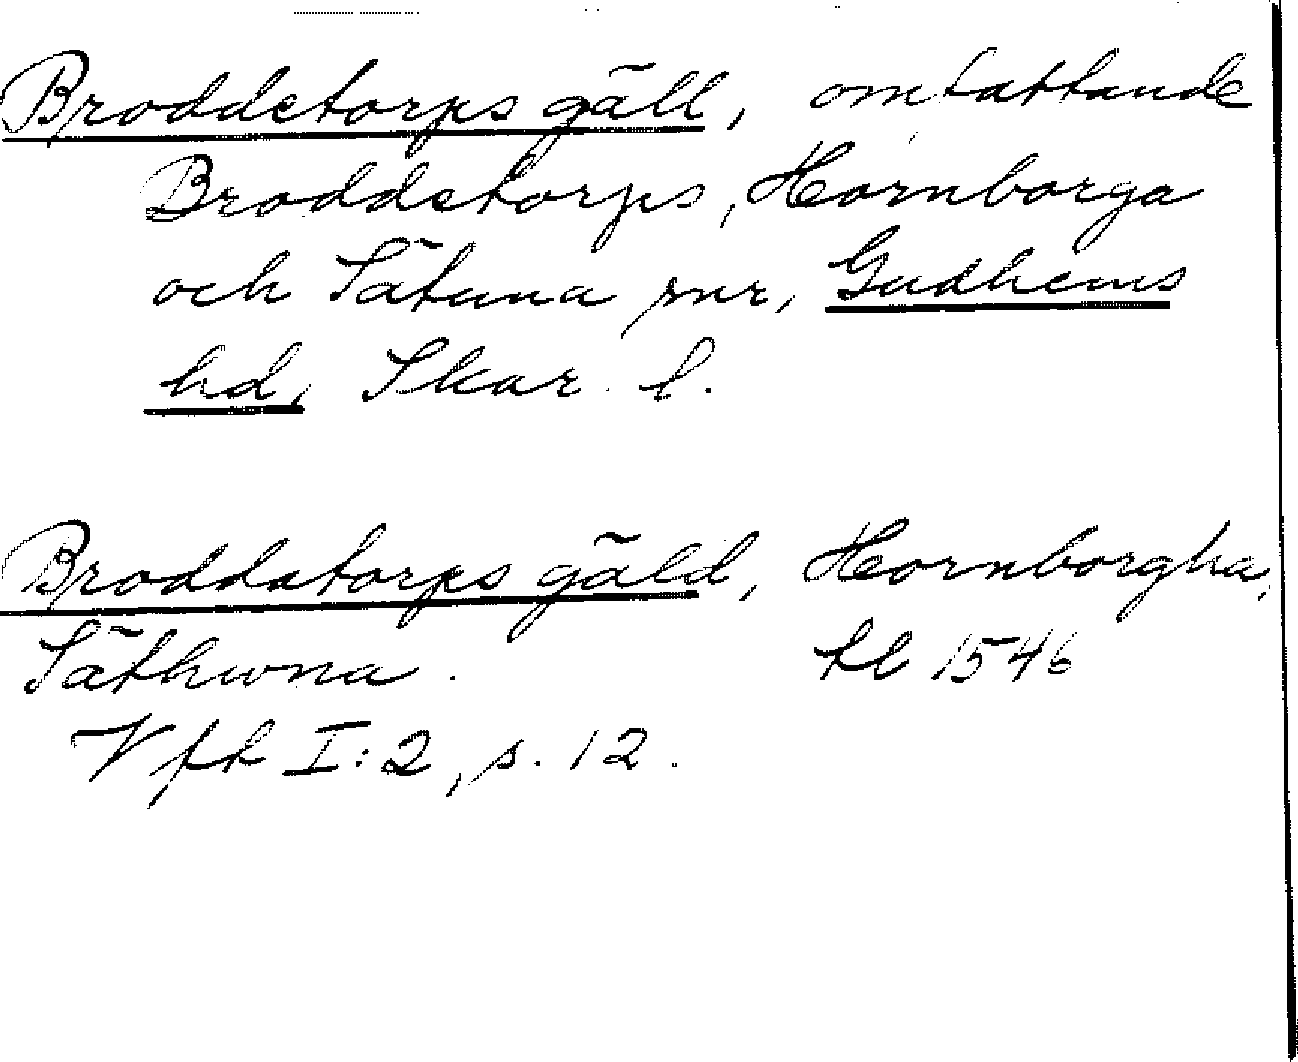 Broddetorps gäll, omfattande
Broddetorps, Hornborga
och Sätuna snr, Gudhems
hd, Skar. l.
Broddatorps gäld, Hornborgha,
Säthwna. tl 1546
Vfk I:2, s. 12.